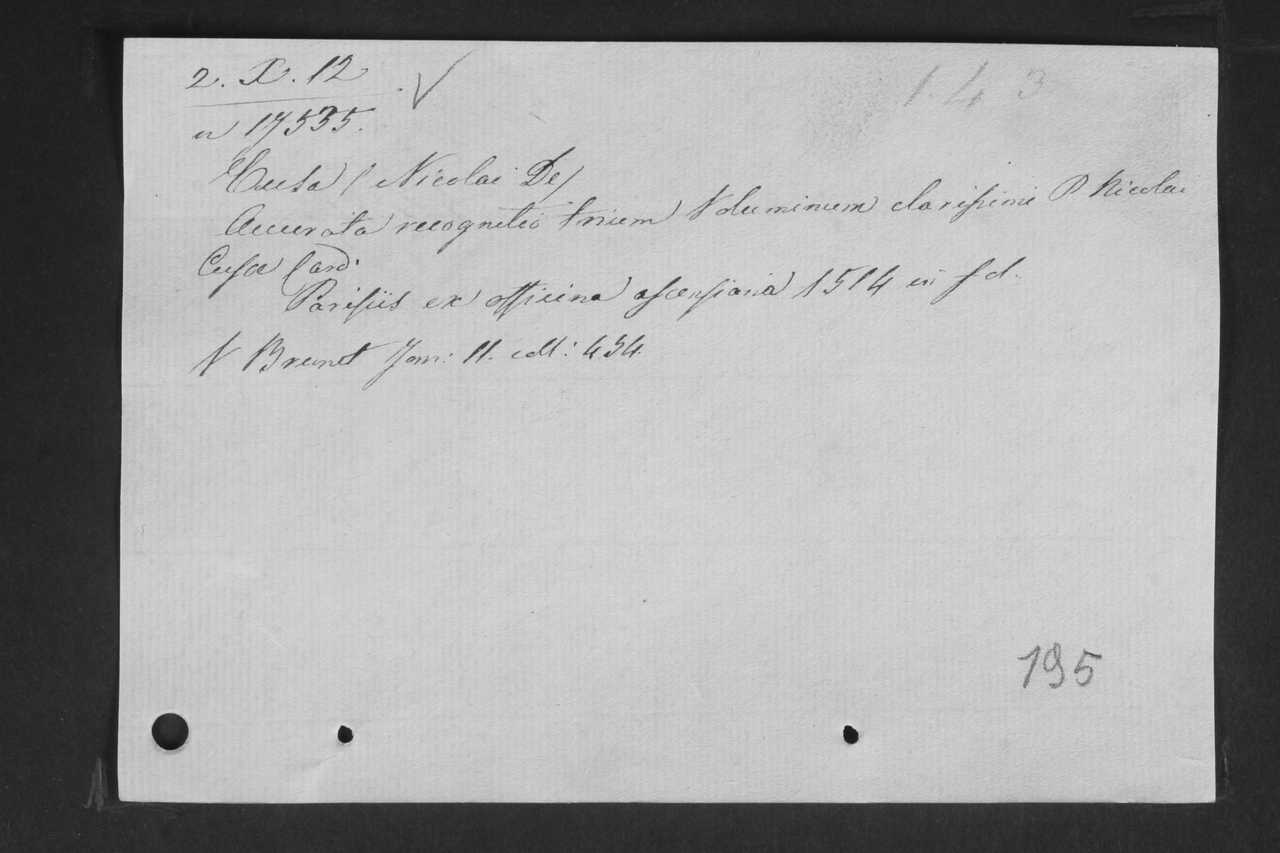 2. X. 12
n 17535.
1 4 3
Cusa (Nicolai De)
Accurata recognitio trium Voluminum clarissimi P Nicolai
Cusae Card.
Parisiis ex officina ascensiana 1514 in fol.
V Brunet Tom: II. coll: 454.
195